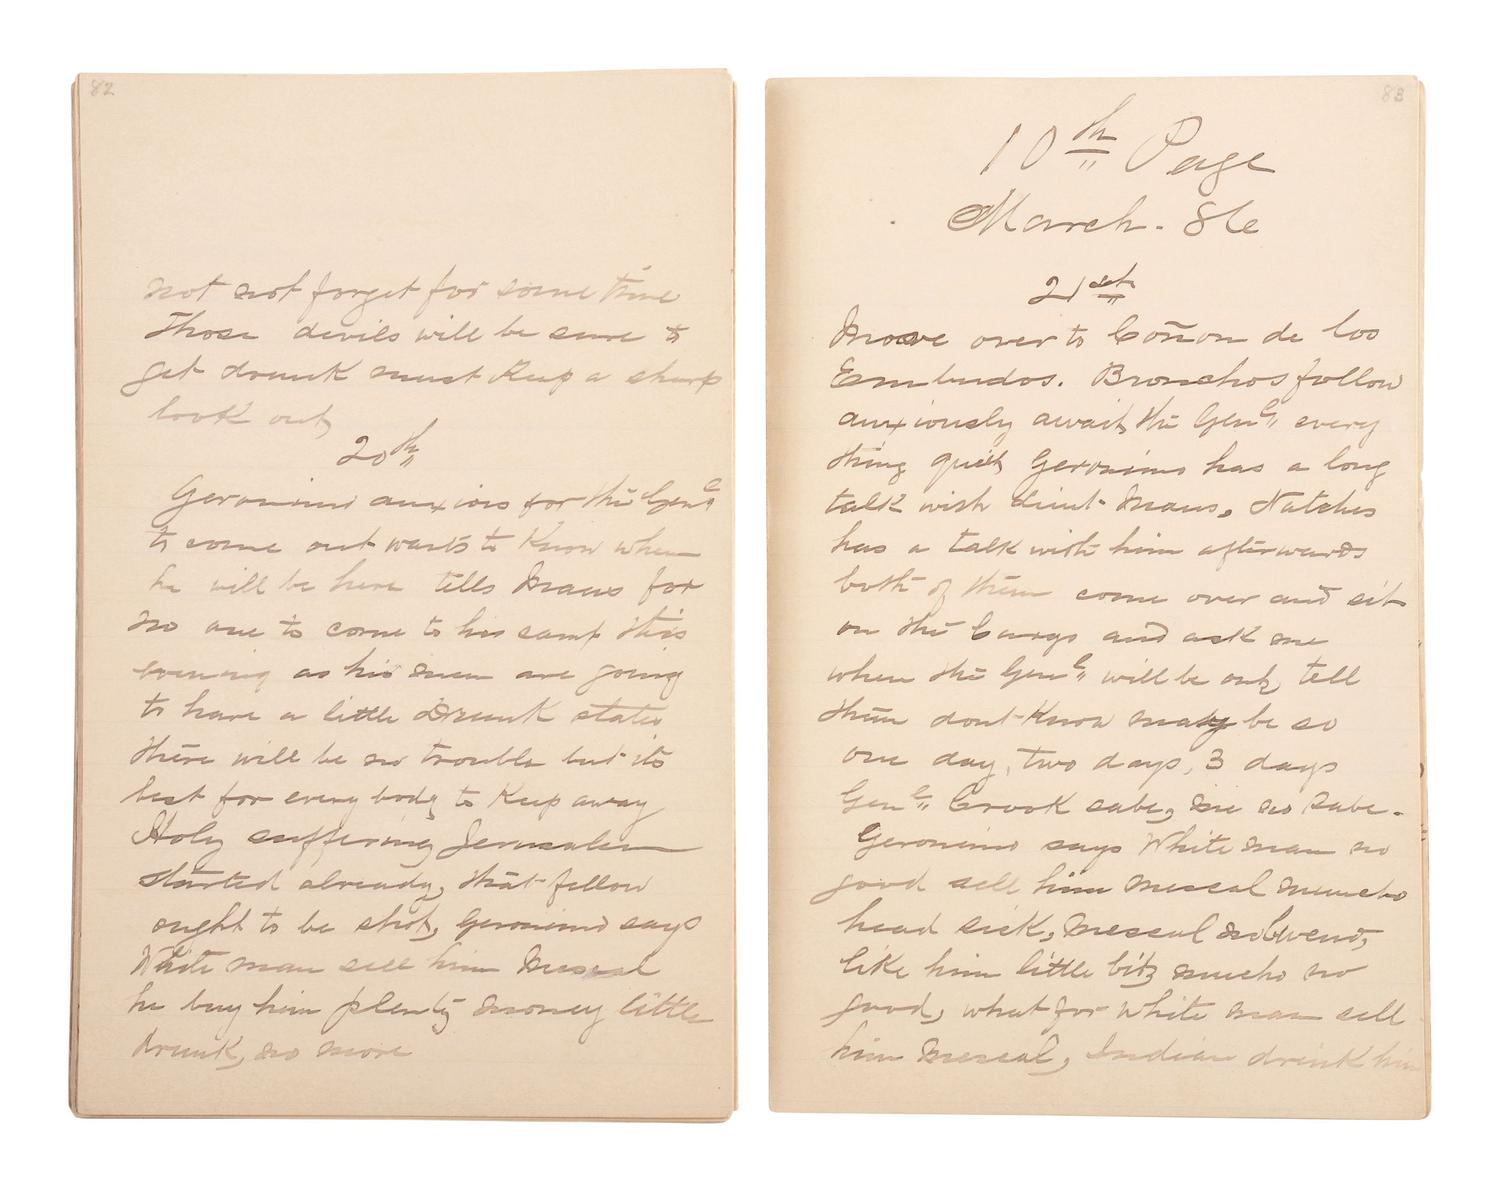 82
not not forget for some time
Those devils will be sure to
get drunk must Keep a sharp
look out,
20th
Geronimo anxious for the Genl
to come out wants to Know when
he will be here tells Maus for
no one to come to his camp this
evening as his men are going
to have a little Drunk states
there will be no trouble but its
best for every body to Keep away
Holy suffering Jerusalem
started already, that fellow
ought to be shot, Geronimo says
White man sell him Mescal
he buy him plenty money little
drunk, no more
83
10th Page
March. 86
21st
Move over to Cañon de los
Embudos. Bronchos follow
anxiously await the Genl every
thing quiet Geronimo has a long
talk with Lieut Maus, Natches
has a talk with him afterwards
both of them come over and sit
on the and ask me
when the Genl will be out, tell
them dont Know may be so
one day, two days, 3 days
Genl Crook sabe, me no sabe.
Geronimo says White man no
good sell him mescal muncho
head sick, mescal no bueno,
like him little bit mucho no
good, what for White man sell
him mescal, Indian drink him